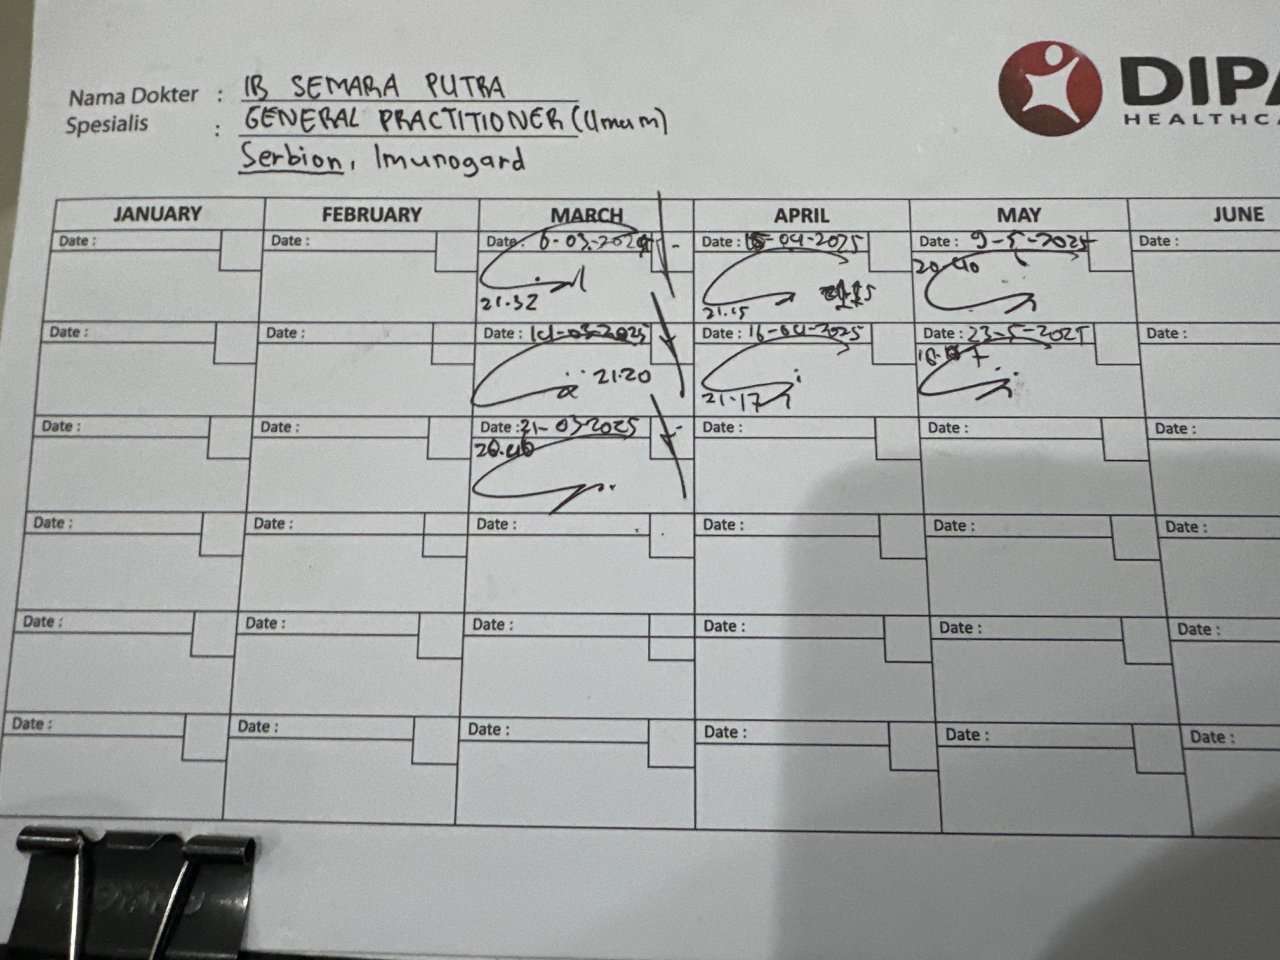 DIPA
HEALTHCA
Nama Dokter : IB SEMARA PUTRA
Spesialis : GENERAL PRACTITIONER (Umum)
Serbion, Imunogard
JANUARY FEBRUARY MARCH APRIL MAY JUNE
Date : Date : Date : 6-03-2025 Date : 15-04-2025 Date : 9-5-2025 Date :
21.32 21.15 20.40
Date : Date : Date : 14-03-2025 Date : 16-04-2025 Date : 23-5-2025 Date :
21.20 21.17
Date : Date : Date : 21-03-2025 Date : Date : Date :
20.40
Date : Date : Date : Date : Date : Date :
Date : Date : Date : Date : Date : Date :
Date : Date : Date : Date : Date : Date :